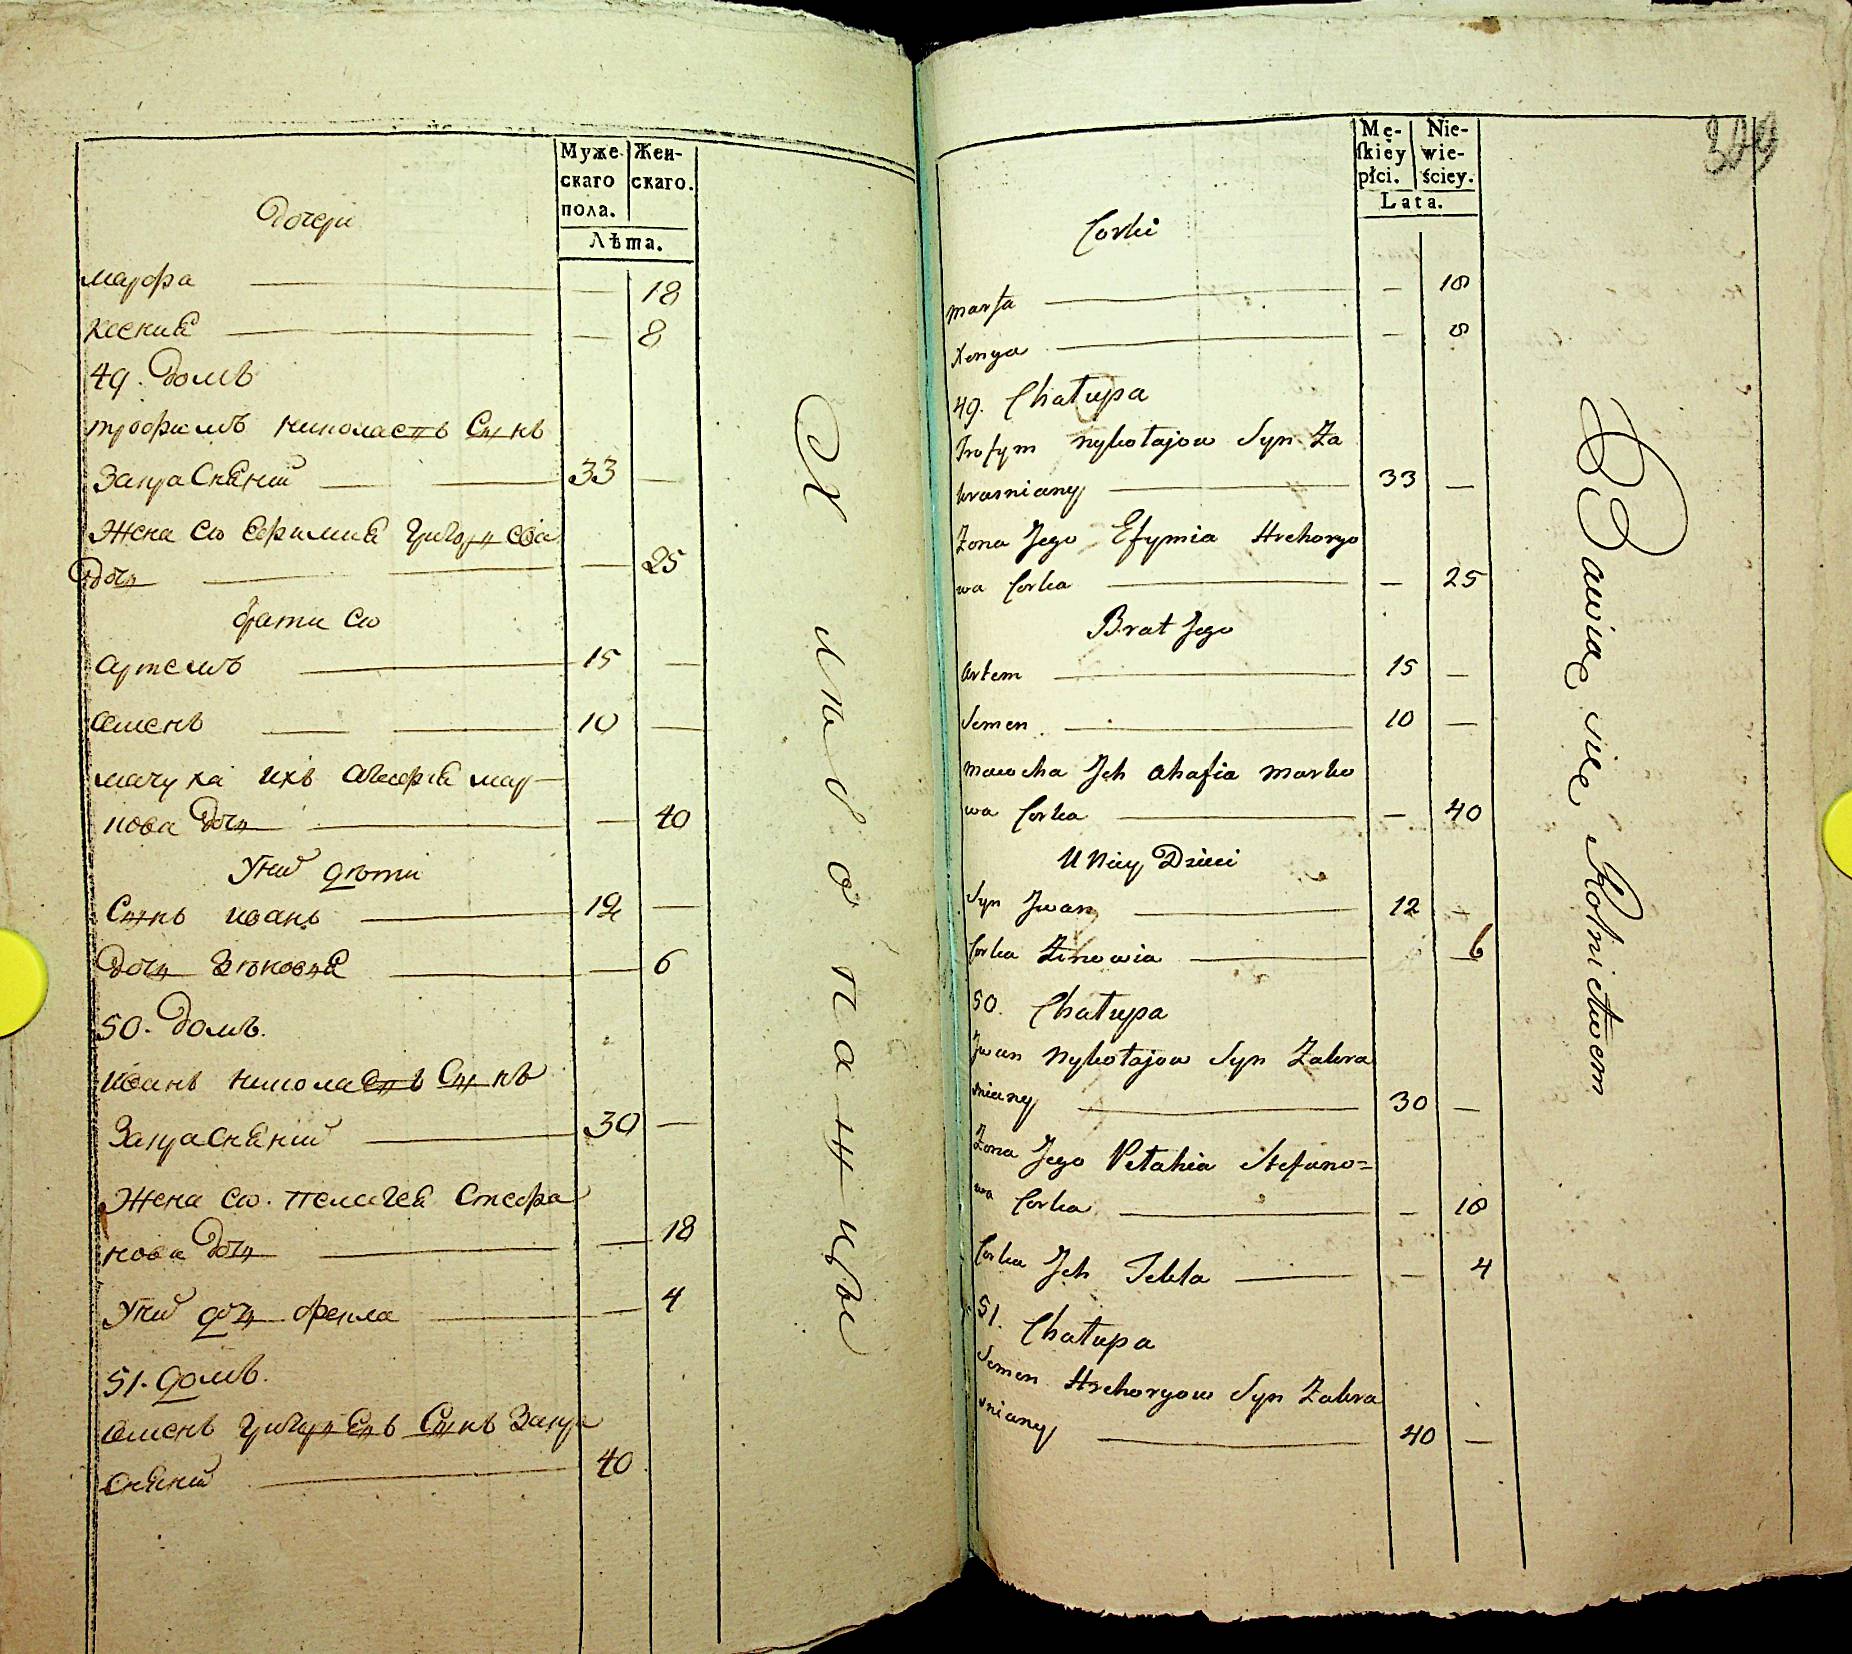 Муже- Жен-
скаго скаго.
пола.
Лѣта.
Дочери
марфа — — 18
ксения — — 8
49. Домъ
трофимъ николаевъ Сынъ
Закраснянии — 33 —
Жена ево Ефимия Григорьева
Дочь — — 25
брати ево
артемъ — 15 —
семенъ — 10 —
мачуха ихъ агафия мар-
кова Дочь — — 40
У ней дѣти
Сынъ иванъ — 12 —
Дочь Зѣновья — — 6
50. Домъ.
иванъ николаевъ Сынъ
Закраснянии — 30 —
Жена ево пелагея Стефа
нова Дочь — — 18
У ней дочь фекла — — 4
51. Домъ.
семенъ Григорьевъ Сынъ Закра
снянии — 40
Хлѣбопашцы
Mę- Nie-
ſkiéy wie-
płci. ściey.
Lata.
309
Corki
Marfa — — 18
Xenya — — 8
49. Chałupa
Trofym Nykołajow Syn Za
krasniany — 33 —
Zona Jego Efymia Hrehoryo
wa Corka — — 25
Brat Jego
Artem — 15 —
Semen — 10 —
Macocha Jch Ahafia Marko
wa Corka — — 40
U Niey Dzieci
Syn Jwan — 12 —
Corka Zinowia — — 6
50. Chałupa
Jwan Nykołajow Syn Zakra
sniany — 30 —
Zona Jego Pelahia Stefano=
wa Corka — — 18
Corka Jch Tekla — — 4
51. Chałupa
Semen Hrehoryow Syn Zakra
sniany — 40 —
Bawią się Rolnictwem